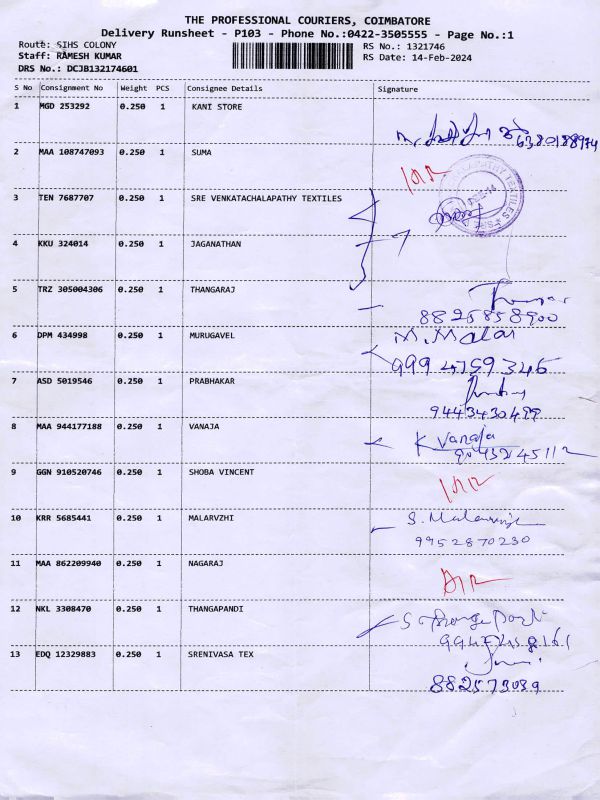 THE PROFESSIONAL COURIERS, COIMBATORE
Delivery Runsheet - P103 - Phone No.:0422-3505555 - Page No.:1
Route: SIHS COLONY
RS No.: 1321746
Staff: RAMESH KUMAR
RS Date: 14-Feb-2024
DRS No.: DCJB132174601
S No Consignment No Weight PCS Consignee Details Signature
1 MGD 253292 0.250 1 KANI STORE
6380188974
2 MAA 108747093 0.250 1 SUMA
3 TEN 7687707 0.250 1 SRE VENKATACHALAPATHY TEXTILES
4 KKU 324014 0.250 1 JAGANATHAN
5 TRZ 305004306 0.250 1 THANGARAJ
8825858900
6 DPM 434998 0.250 1 MURUGAVEL M. Malar
9994759346
7 ASD 5019546 0.250 1 PRABHAKAR
9443430499
8 MAA 944177188 0.250 1 VANAJA K Vanaja
9043245112
9 GGN 910520746 0.250 1 SHOBA VINCENT
10 KRR 5685441 0.250 1 MALARVZHI S.
9952870230
11 MAA 862209940 0.250 1 NAGARAJ
12 NKL 3308470 0.250 1 THANGAPANDI S
13 EDQ 12329883 0.250 1 SRENIVASA TEX